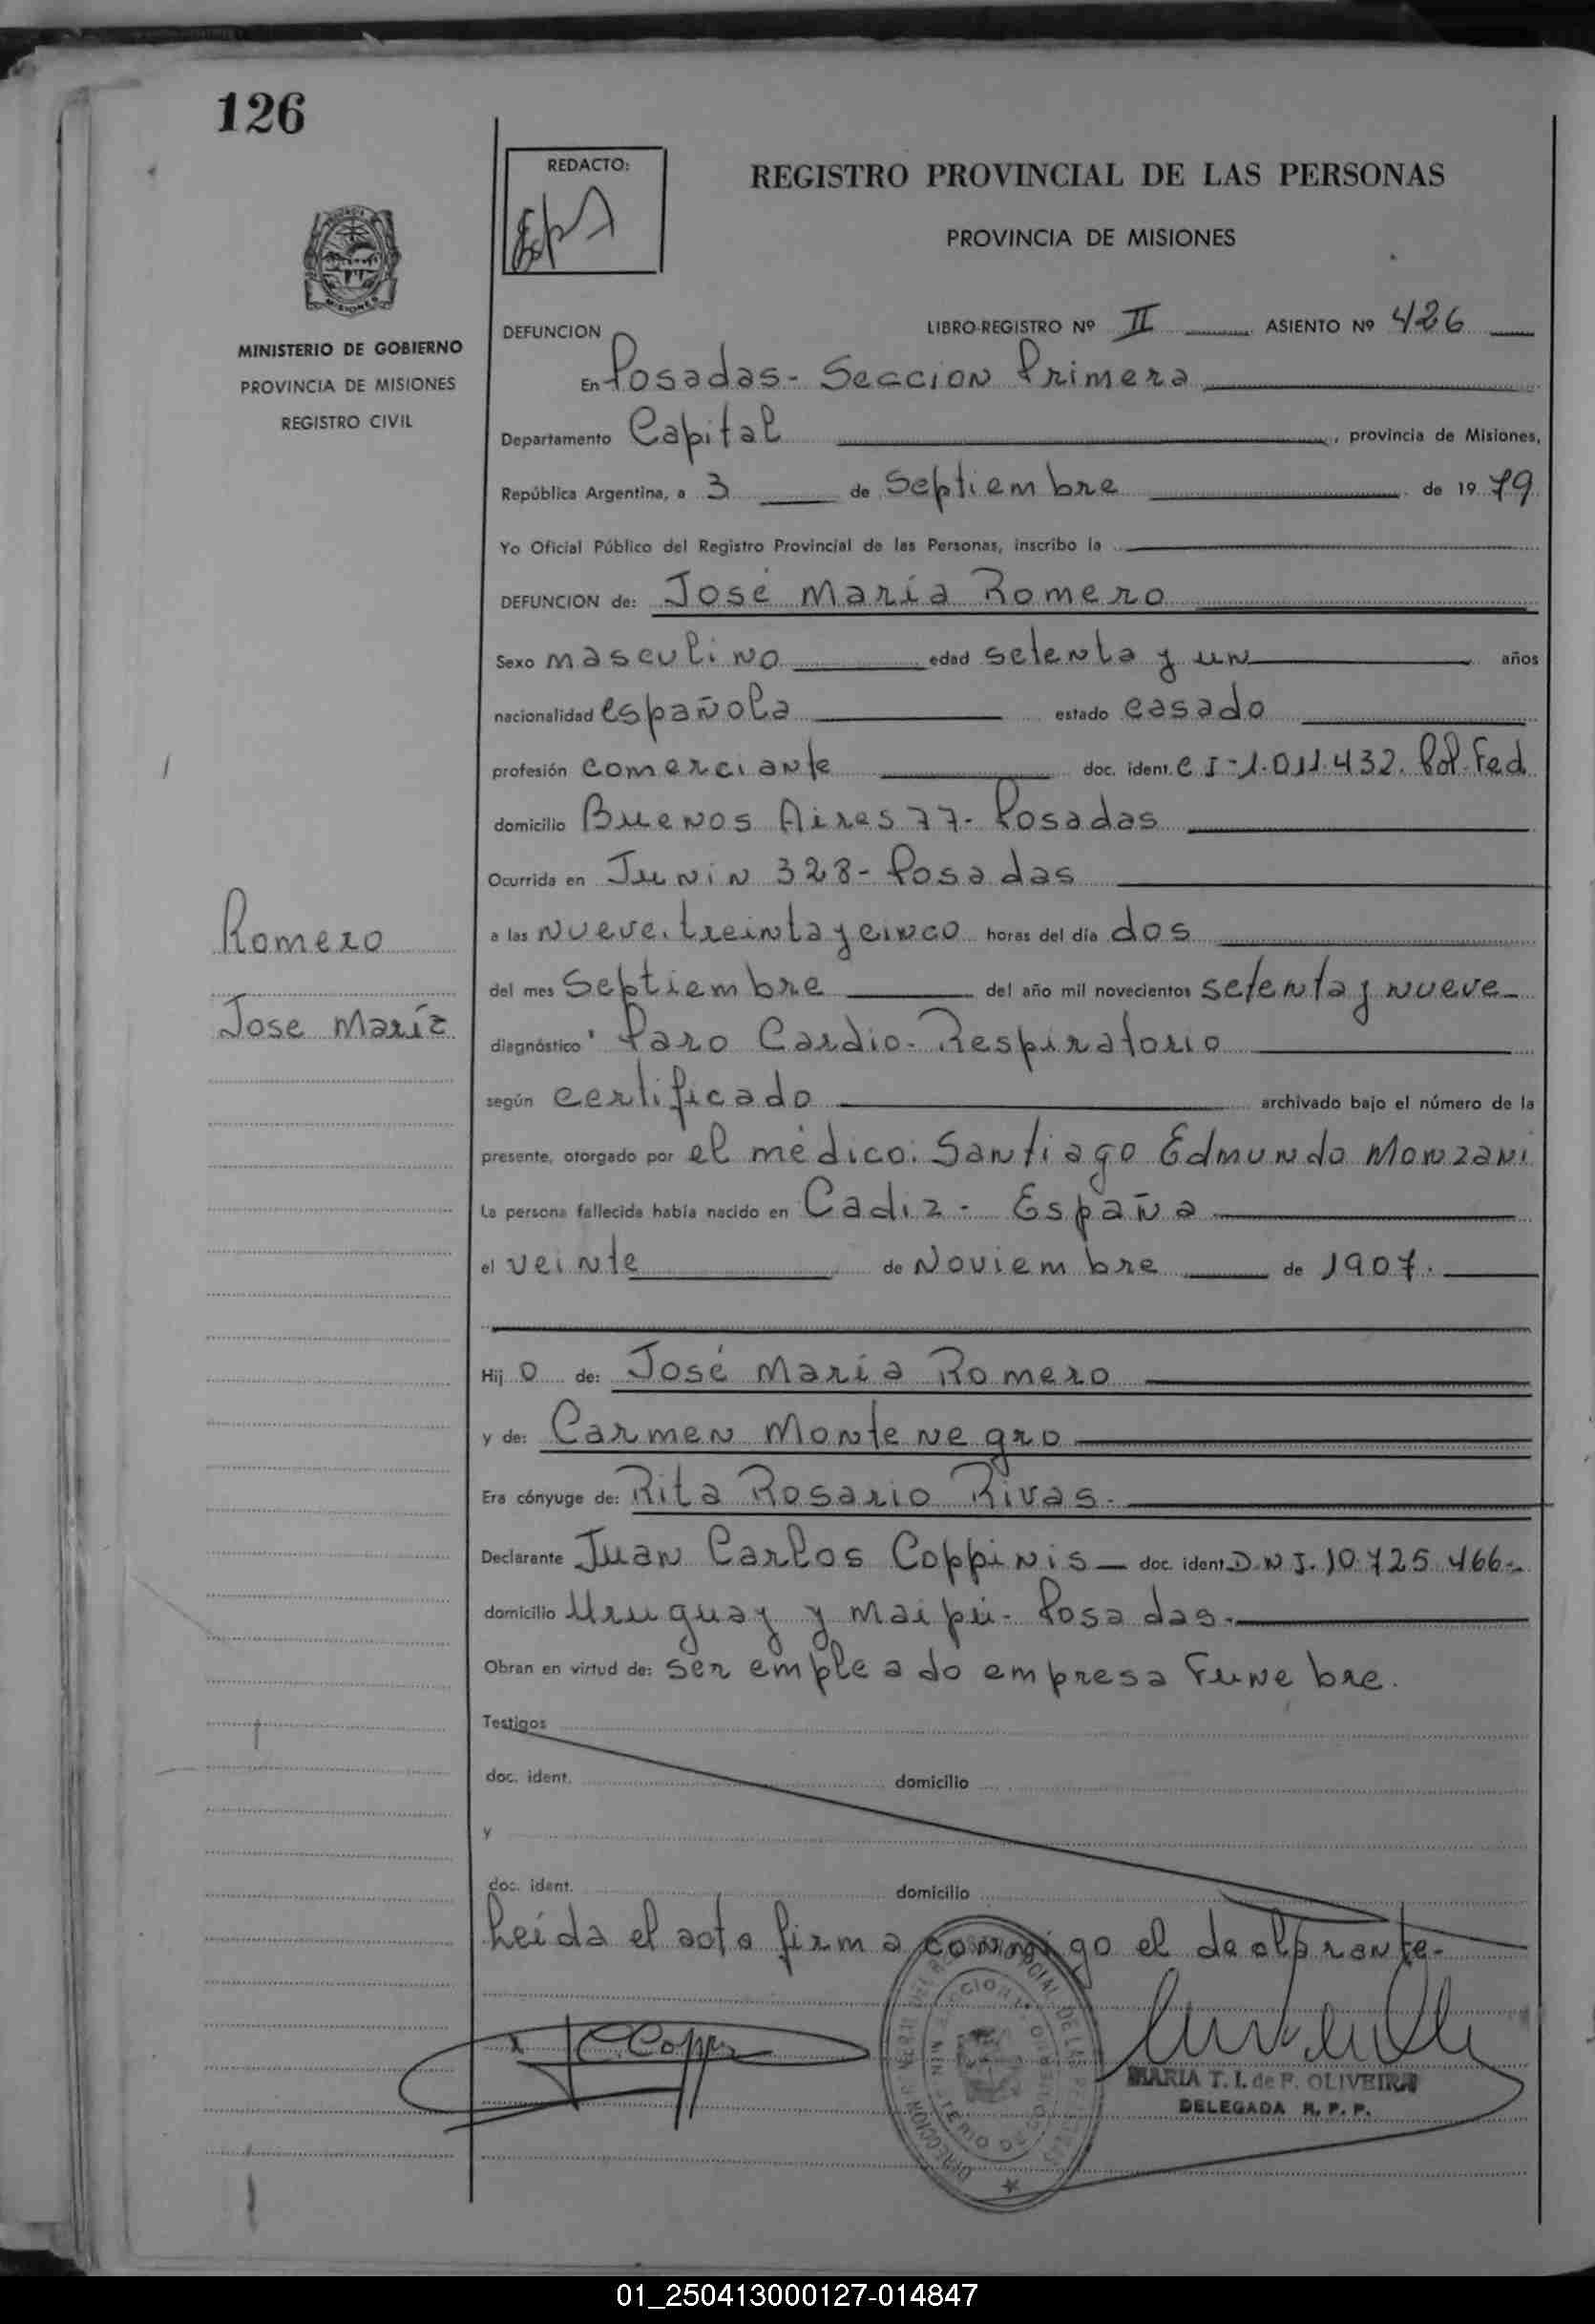 126
REDACTO:
REGISTRO PROVINCIAL DE LAS PERSONAS
PROVINCIA DE MISIONES
MISIONES
MINISTERIO DE GOBIERNO
PROVINCIA DE MISIONES
REGISTRO CIVIL
DEFUNCION LIBRO-REGISTRO Nº II ASIENTO Nº 426
En Posadas - Seccion Primera
Departamento Capital, provincia de Misiones,
República Argentina, a 3 de Septiembre de 1979
Yo Oficial Público del Registro Provincial de las Personas, inscribo la
DEFUNCION de: José María Romero
Sexo masculino edad setenta y un años
nacionalidad española estado casado
profesión comerciante doc. ident. C I-1.011.432. Pol. Fed
domicilio Buenos Aires 77- Posadas
Ocurrida en Junin 328- Posadas
Romero
a las nueve. treinta y cinco horas del día dos
del mes Septiembre del año mil novecientos setenta y nueve
Jose María
diagnóstico Paro Cardio-Respiratorio
según certificado archivado bajo el número de la
presente, otorgado por el médico: Santiago Edmundo Monzani
La persona fallecida había nacido en Cadiz - España
el veinte de Noviembre de 1907.
Hij o de: José María Romero
y de: Carmen Montenegro
Era cónyuge de: Rita Rosario Rivas.
Declarante Juan Carlos Coppinis doc. ident. D.N.I. 10.725.466-
domicilio Uruguay y maipú- Posadas.
Obran en virtud de: ser empleado empresa Funebre.
Testigos
doc. ident. domicilio
y
doc. ident. domicilio
Leída el acta firma conmigo el declarante-
MARIA T. I. de F. OLIVEIRA
DELEGADA R. P. P.
01_250413000127-014847